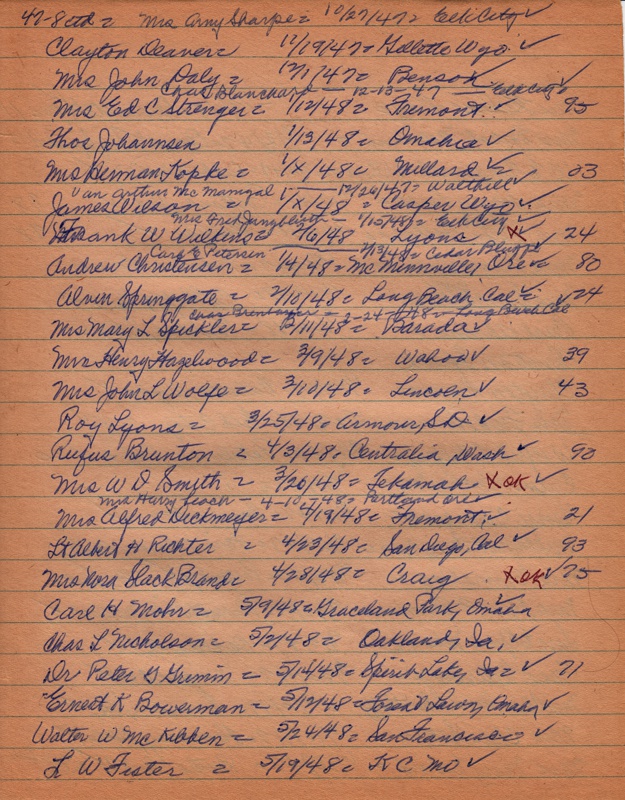 47-8 etd = Mrs Amy Sharpe = 10/27/47 = Elk City ✓
Clayton Deaver = 11/19/47 = Gillette Wyo. ✓
Mrs John Daly = 12/1/47 = Benson ✓
Chas Blanchard — 12-13-47 — Elk City ✓
Mrs Ed C Strenger = 1/12/48 = Fremont. ✓ 95
Thos Johannsen 1/13/48 = Omaha ✓
Mrs Herman Kopke = 1/X/48 = Millard ✓ 03
Van Arthur McManigal — 12/26/47 = Walthill ✓
James Wilson = 1/X/48 = Casper Wyo. ✓
Mrs Fred Jungbluth — 1/15/48 = Elk City ✓
Frank W Wilkins = 1/6/48 = Lyons 24
Carl E Petersen — 2/13/48 = Cedar Bluffs ✓
Andrew Christensen = 1/4/48 = McMinnville, Ore = 80
Alver Springgate = 2/10/48 = Long Beach, Cal = ✓ 24
Chas — 2-24-48 = Long Beach Cal
Mrs Mary L Spickler = 2/11/48 = Barada ✓
Mrs Henry Hazelwood = 3/9/48 = Wahoo ✓ 39
Mrs John L Wolfe = 3/10/48 = Lincoln ✓ 43
Roy Lyons = 3/25/48 = Armour, S.D. ✓
Rufus Brunton = 4/3/48 = Centralia, Wash ✓ 90
Mrs W D Smith = 3/20/48 = Tekamah X OK ✓
Mrs Harry Leach — 4-10-48 = Portland Ore ✓
Mrs Alfred Dickmeyer = 4/19/48 = Fremont. ✓ 21
Lt Albert H Richter = 4/23/48 = San Diego, Cal ✓ 93
Mrs Nora Slack Brand = 4/28/48 = Craig X OK ✓ 75
Carl H Mohr = 5/9/48 = Graceland Park, Omaha
Chas L Nicholson = 5/2/48 = Oakland, Ia, ✓
Dr Peter G Grimm = 5/14/48 = Spirit Lake, Ia = ✓ 71
Ernest K Bowerman = 5/12/48 = Forest Lawn, Omaha ✓
Walter W McKibben = 5/24/48 = San Francisco ✓
L W Fister = 5/19/48 = K C Mo ✓